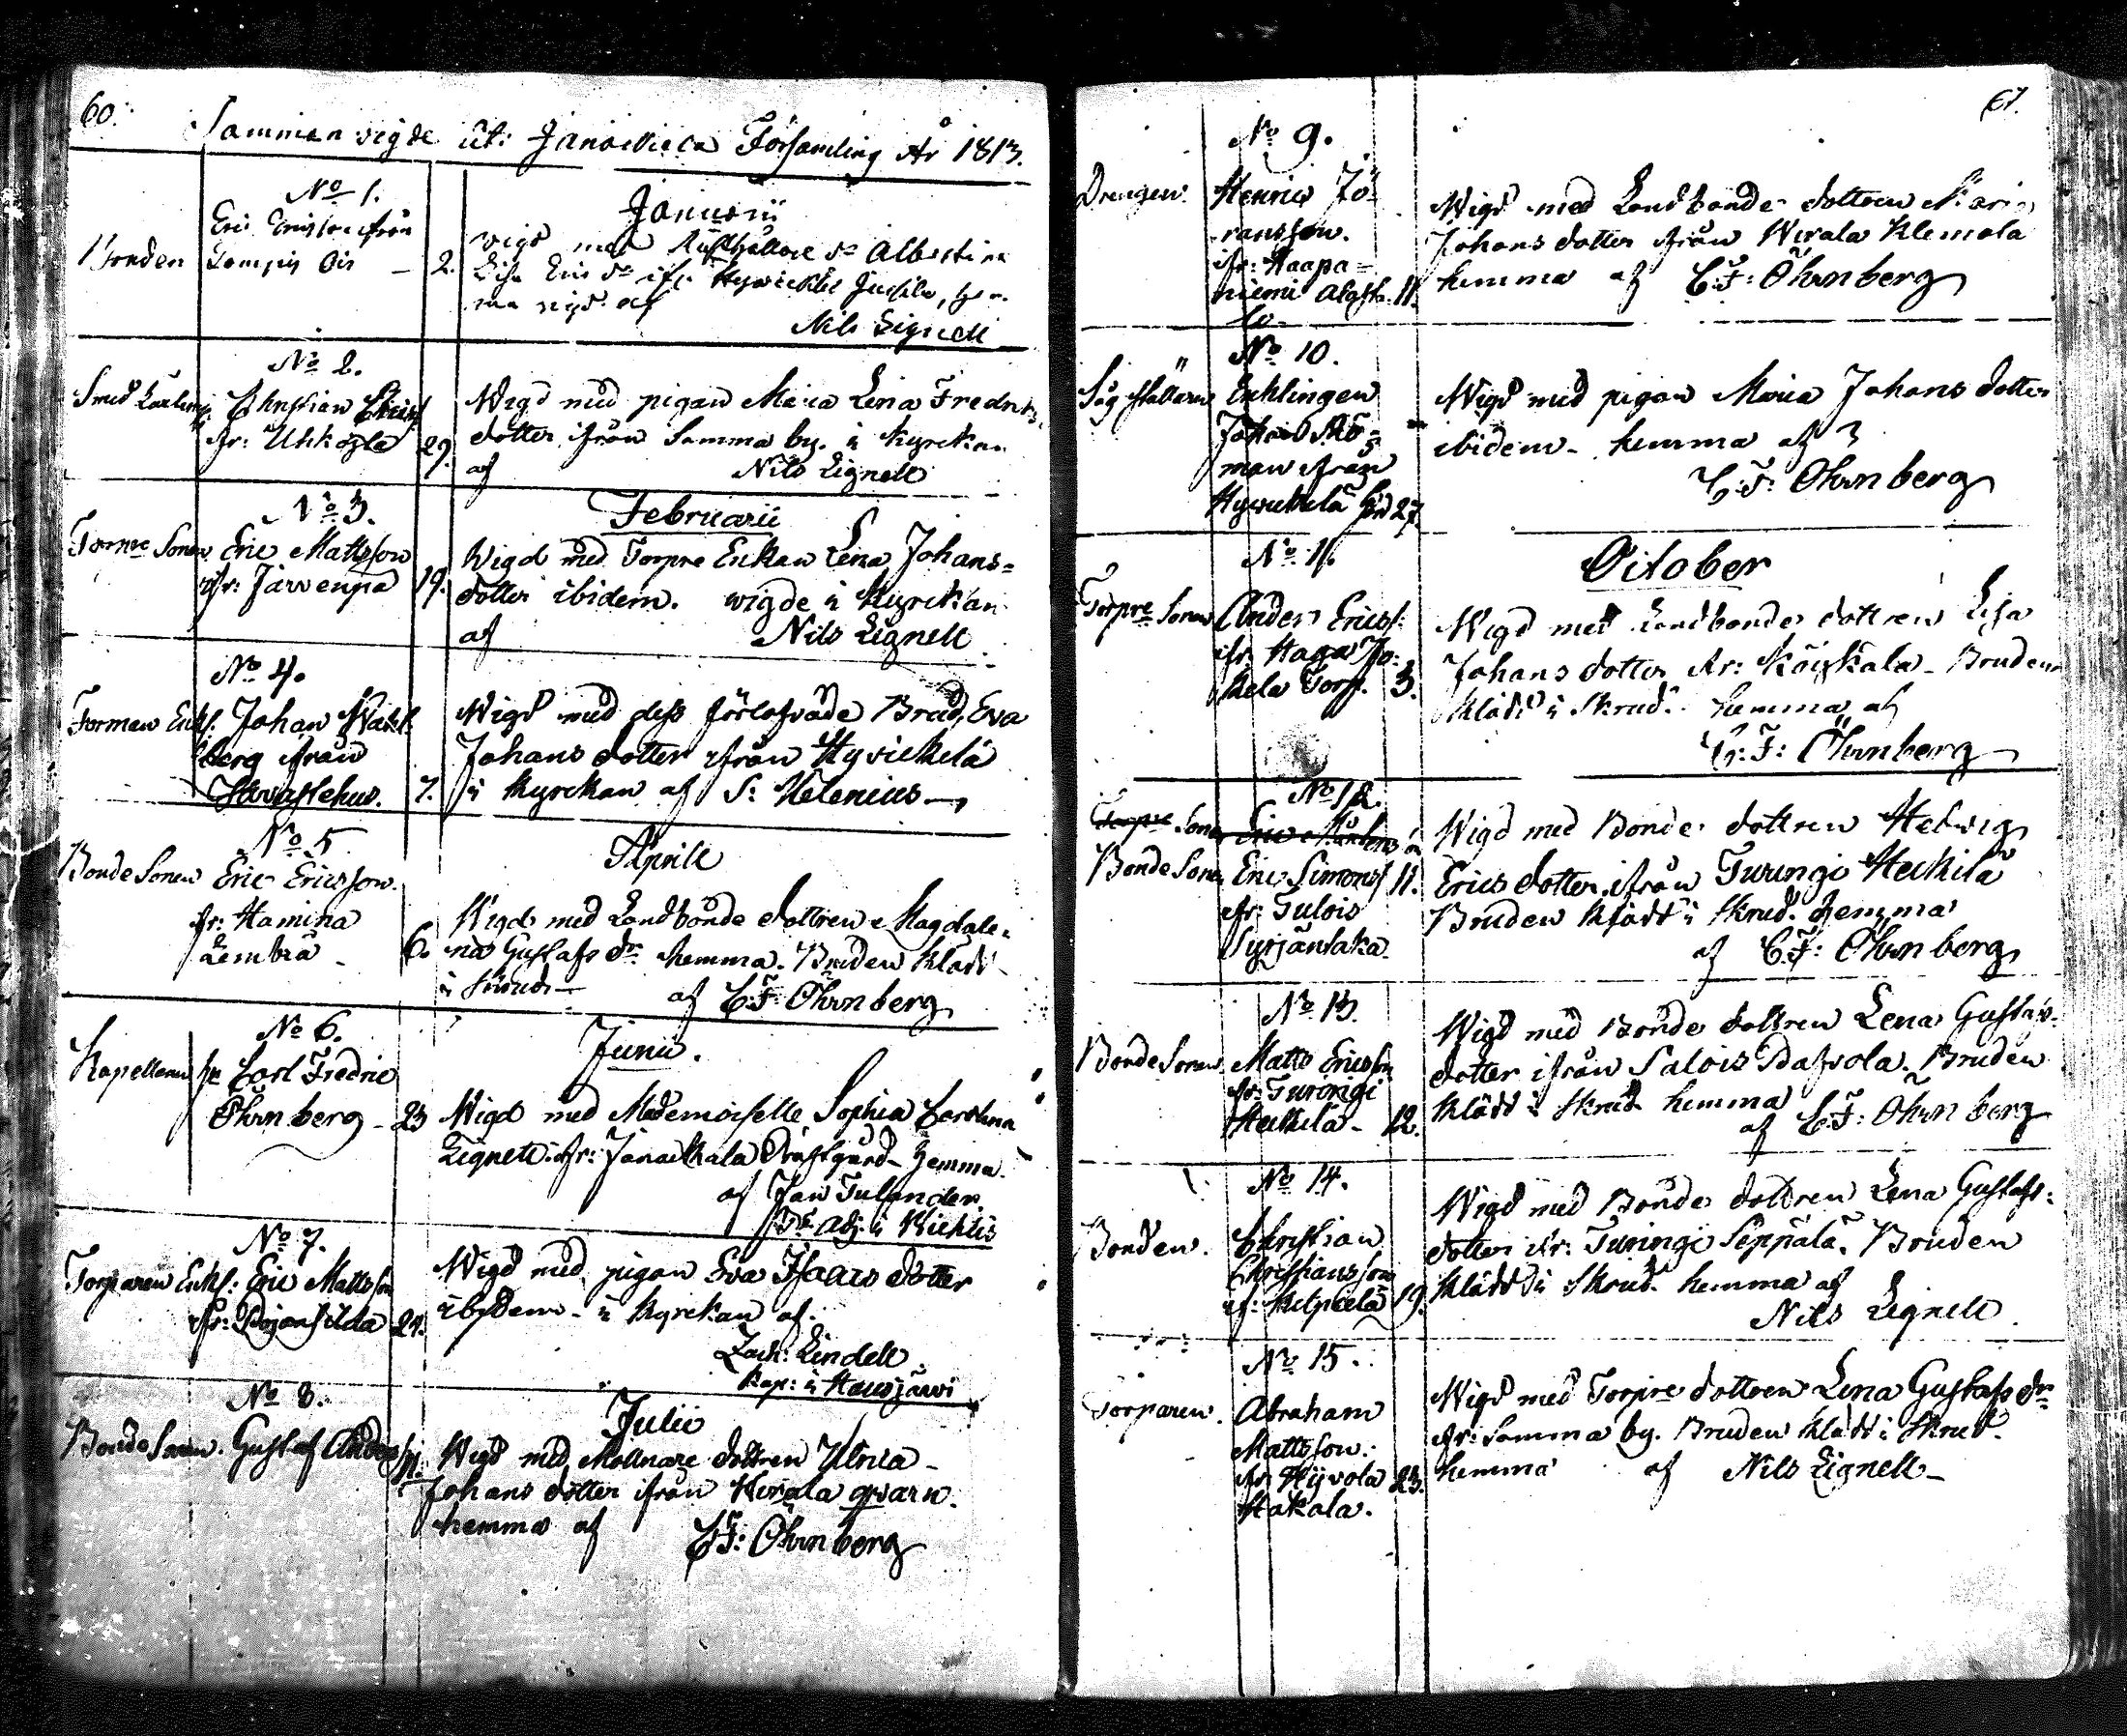 60.
Sammanvigde uti Janakkala Församling År 1813.
No 1.
Januarii
Bonden
Eric Ericsson ifrån
2.
wigd med Rusthållare dr Albertina
Lisa Erics dr ifr. Hyvickelä Jussila, hem-
ma vigd af
Nils Lignell
No 2.
Smed Lärling
Christian Christ
fr: Uhkoila
29.
Wigd med pigan Maria Lena Fredrics
dotter ifrån samma by. i Kyrckan
af Nils Lignell
No 3.
Februarii
Torpre Sonen
Eric Mattsson
ifr: Järvenpä
19.
Wigd med Torpre Enkan Lena Johans=
dotter ibidem. wigde i Kyrckan
af Nils Lignell
No 4.
Forman Enkl.
Johan Wahl-
berg ifrån
Tavastehus.
7.
Wigd med dess förlofvade Brud, Eva
Johans dotter ifrån Hyvickelä
i Kyrckan af S: Helenius
No 5
Aprill
Bonde Sonen
Eric Ericsson
fr: Hamina
6.
Wigd med Landbonde dottren Magdale-
na Gustafs dr hemma. Bruden klädd
i skrud af C: F: Öhrnberg
No 6.
Junii.
Kapellanen
hr Carl Fredric
Öhrnberg
23
Wigd med Mademoiselle Sophia Carolina
Lignell ifr: Janakkala Prästgård hemma
af Jan Tulander
Adj. i
No 7.
Torparen Enkl:
Eric Mattsson
24.
Wigd med pigan Eva Isaacs dotter
ibidem i kyrckan af
Zach: Lindell
Kap: i Hausjärvi
No 8.
Julii
Bonde Sonen.
Gustaf Anders
11.
Wigd med Mölnare dottren Ulrica
Johans dotter ifrån Kerala qvarn.
hemma af C: F: Öhrnberg
61.
No 9.
Drengen
Henric Jö-
ransson.
ifr: Haapa=
niemi
11.
Wigd med Landbonde dottren Maria
Johans dotter ifrån Wirala Klemola
hemma af C: F: Öhrnberg
No 10.
Sågställaren
Enklingen
Johan
man ifrån
Hyvickelä 27.
Wigd med pigan Maria Johans dotter
ibidem hemma af
C: F: Öhrnberg
No 11.
October
Torpre Sonen
Anders Erics:
ifr: Haga Jo-
kela Torp. 3.
Wigd med Landbonde dottren Lisa
Johans dotter ifr: Bruden
klädd i skrud. hemma af
C: F: Öhrnberg
No 12.
Torpre Sonen
Bonde Sonen
Eric Simons
ifr: Tulois
Syrjäntaka
11.
Wigd med Bonde dottren Hedvig
Erics dotter ifrån Turengi Heikilä
Bruden klädd i skrud. hemma
af C: F: Öhrnberg
No 13.
Bonde Sonen
Matts Ericsson
fr: Turengi
Heikilä
12.
Wigd med Bonde dottren Lena Gustafs-
dotter ifrån Salois. Bruden
klädd i skrud hemma
af C: F: Öhrnberg
No 14.
Bonden.
Christian
Christiansson
19.
Wigd med Bonde dottren Lena Gustafs-
dotter ifr: Turingi Seppälä. Bruden
klädd i skrud. hemma af
Nils Lignell
No 15.
Torparen.
Abraham
Mattsson.
ifr. Hyvola
Hakala.
23.
Wigd med Torpre dottren Lena Gustafs dr
ifr: samma by. Bruden klädd i skrud.
hemma af Nils Lignell